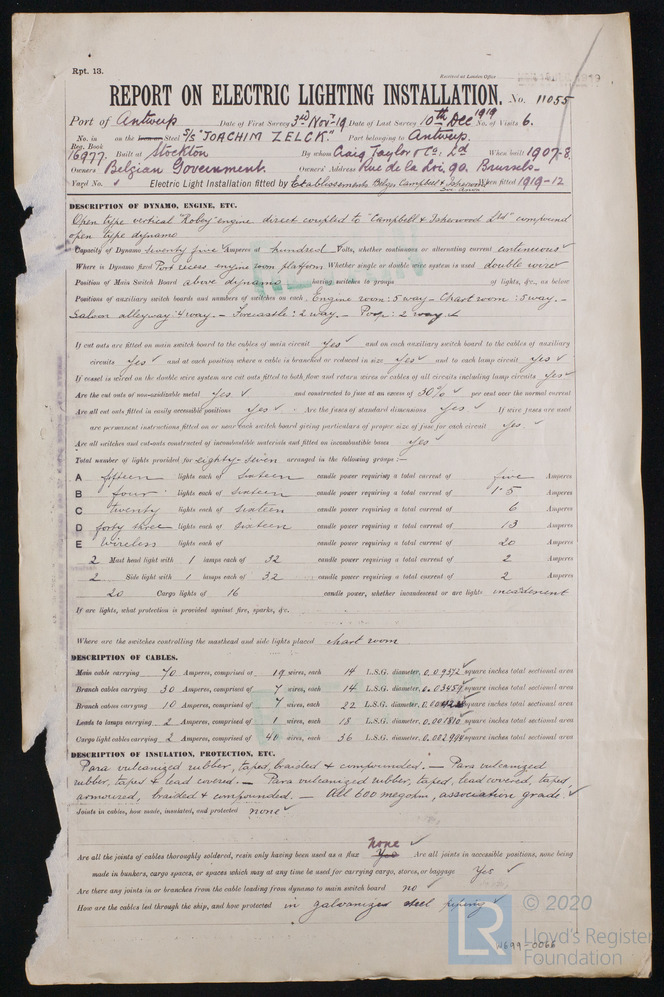 Rpt. 13.
Received at London Office
REPORT ON ELECTRIC LIGHTING INSTALLATION. No. 11055
Port of Antwerp Date of First Survey 3rd Nov. 19 Date of Last Survey 10th Dec 1919 No. of Visits 6.
No. in Reg. Book on the Iron or Steel S/S "JOACHIM ZELCK" Port belonging to Antwerp.
16977. Built at Stockton By whom Craig Taylor & Co. Ld When built 1907-8.
Owners Belgian Government. Owners' Address Rue de la Loi, 90. Brussels-
Yard No. Electric Light Installation fitted by Etablissements Belges Campbell & Isherwood When fitted 1919-12
DESCRIPTION OF DYNAMO, ENGINE, ETC.
Open type vertical "Robey" engine direct coupled to "Campbell & Isherwood Ltd" compound
open type dynamo
Capacity of Dynamo seventy five Amperes at hundred Volts, whether continuous or alternating current continuous
Where is Dynamo fixed Port recess engine room platform Whether single or double wire system is used double wire
Position of Main Switch Board above dynamo having switches to groups of lights, &c., as below
Positions of auxiliary switch boards and numbers of switches on each Engine room: 5 way - Chart room: 5 way. -
Saloon alleyway: 4 way. - Forecastle: 2 way. - Poop: 2 way
If cut outs are fitted on main switch board to the cables of main circuit Yes and on each auxiliary switch board to the cables of auxiliary
circuits Yes and at each position where a cable is branched or reduced in size Yes and to each lamp circuit Yes
If vessel is wired on the double wire system are cut outs fitted to both flow and return wires or cables of all circuits including lamp circuits Yes
Are the cut outs of non-oxidizable metal Yes and constructed to fuse at an excess of 30% per cent over the normal current
Are all cut outs fitted in easily accessible positions Yes Are the fuses of standard dimensions Yes If wire fuses are used
are permanent instructions fitted on or near each switch board giving particulars of proper size of fuse for each circuit Yes
Are all switches and cut-outs constructed of incombustible materials and fitted on incombustible bases Yes
Total number of lights provided for eighty-seven arranged in the following groups:-
A fifteen lights each of sixteen candle power requiring a total current of five Amperes
B four lights each of sixteen candle power requiring a total current of 1.5 Amperes
C twenty lights each of sixteen candle power requiring a total current of 6 Amperes
D forty three lights each of sixteen candle power requiring a total current of 13 Amperes
E Wireless lights each of candle power requiring a total current of 20 Amperes
2 Mast head light with 1 lamps each of 32 candle power requiring a total current of 2 Amperes
2 Side light with 1 lamps each of 32 candle power requiring a total current of 2 Amperes
20 Cargo lights of 16 candle power, whether incandescent or arc lights incandescent
If arc lights, what protection is provided against fire, sparks, &c.
Where are the switches controlling the masthead and side lights placed chart room
DESCRIPTION OF CABLES.
Main cable carrying 70 Amperes, comprised of 19 wires, each 14 L.S.G. diameter, 0.09372 square inches total sectional area
Branch cables carrying 30 Amperes, comprised of 7 wires, each 14 L.S.G. diameter, 0.03459 square inches total sectional area
Branch cables carrying 10 Amperes, comprised of 7 wires, each 22 L.S.G. diameter, square inches total sectional area
Leads to lamps carrying 2 Amperes, comprised of 1 wires, each 18 L.S.G. diameter, 0.001810 square inches total sectional area
Cargo light cables carrying 2 Amperes, comprised of wires, each 36 L.S.G. diameter, square inches total sectional area
DESCRIPTION OF INSULATION, PROTECTION, ETC.
Para vulcanized rubber, taped, braided & compounded. - Para vulcanized
rubber, taped & lead covered. - Para vulcanized rubber, taped, lead covered, taped
armoured, braided & compounded. - All 600 megohm, association grade.
Joints in cables, how made, insulated, and protected none
none
Are all the joints of cables thoroughly soldered, resin only having been used as a flux Yes Are all joints in accessible positions, none being
made in bunkers, cargo spaces, or spaces which may at any time be used for carrying cargo, stores, or baggage Yes
Are there any joints in or branches from the cable leading from dynamo to main switch board no
How are the cables led through the ship, and how protected in galvanized steel piping
© 2020
Lloyd's Register
Foundation
W699-0066